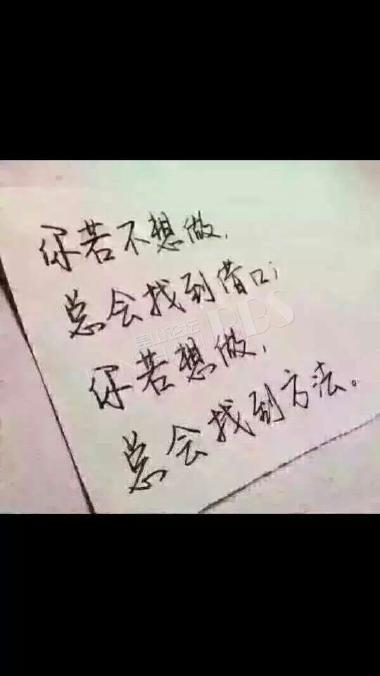 你若不想做，
总会找到借口；
你若想做，
总会找到方法。
BBS